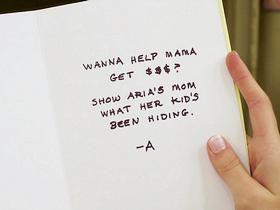 WANNA HELP MAMA
GET $$$?
SHOW ARIA'S MOM
WHAT HER KID'S
BEEN HIDING.
-A